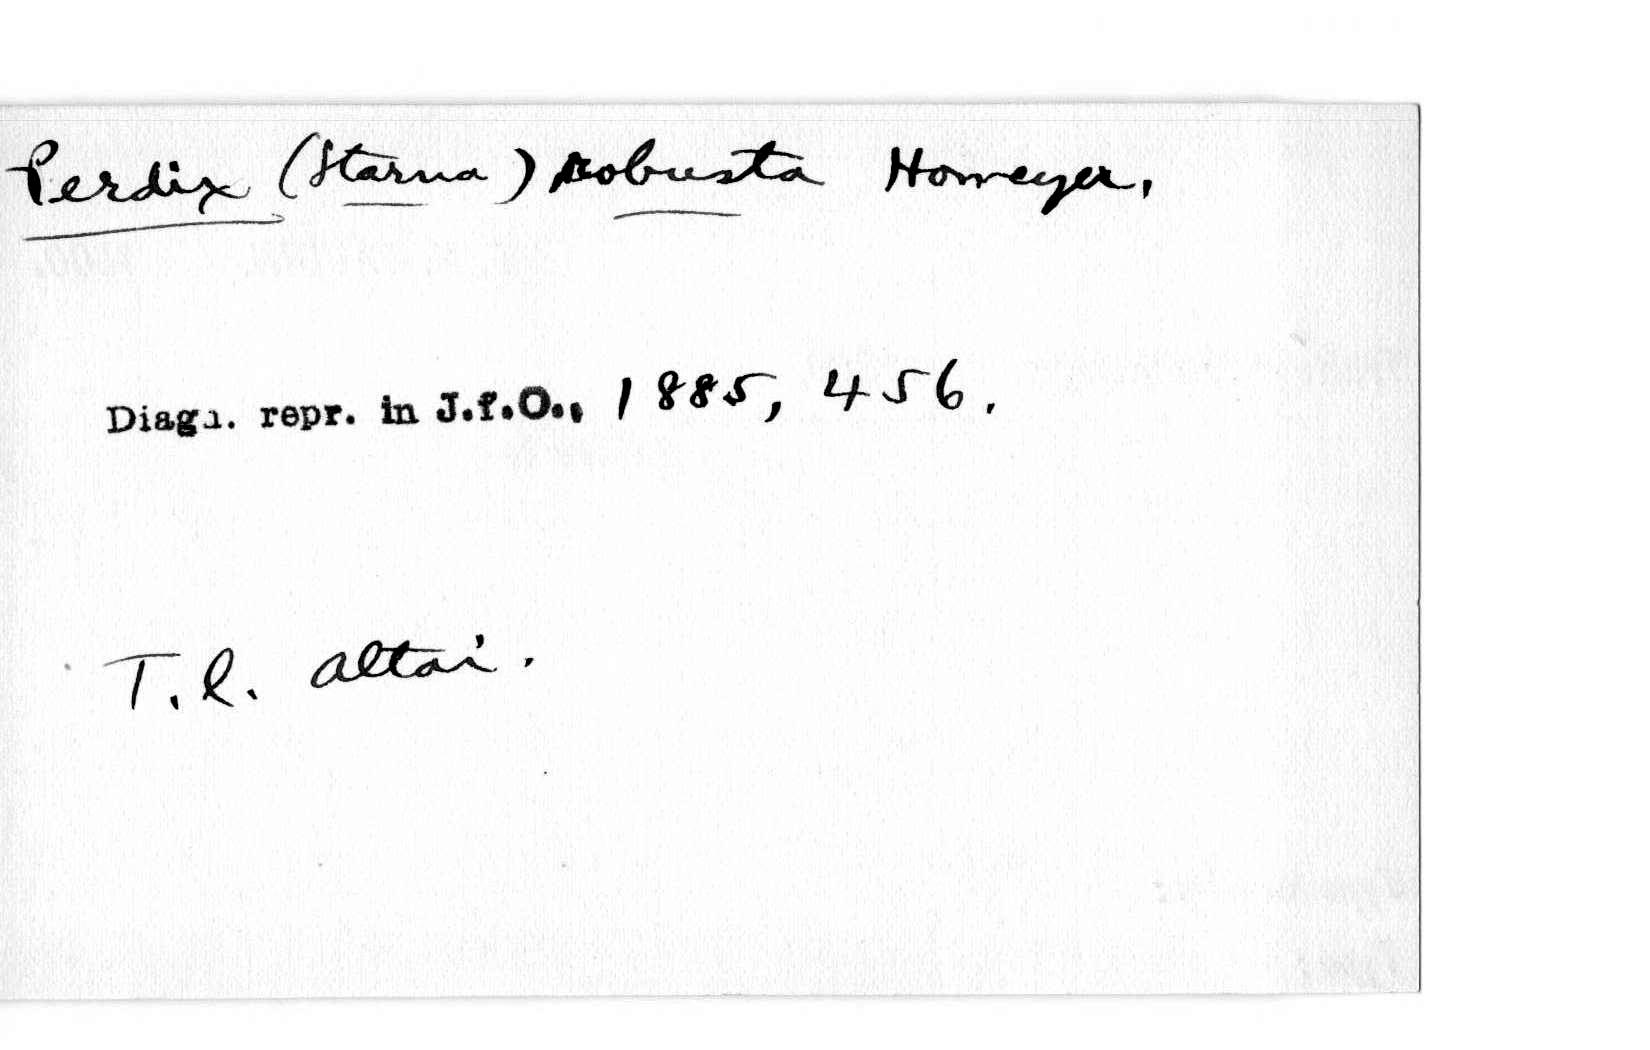 Perdix (Starna) robusta Homeyer,
Diagn. repr. in J.f.O., 1885, 456.
T. l. Altai.